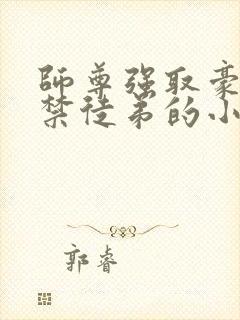 師尊强取豪
禁徒弟的小
郭睿